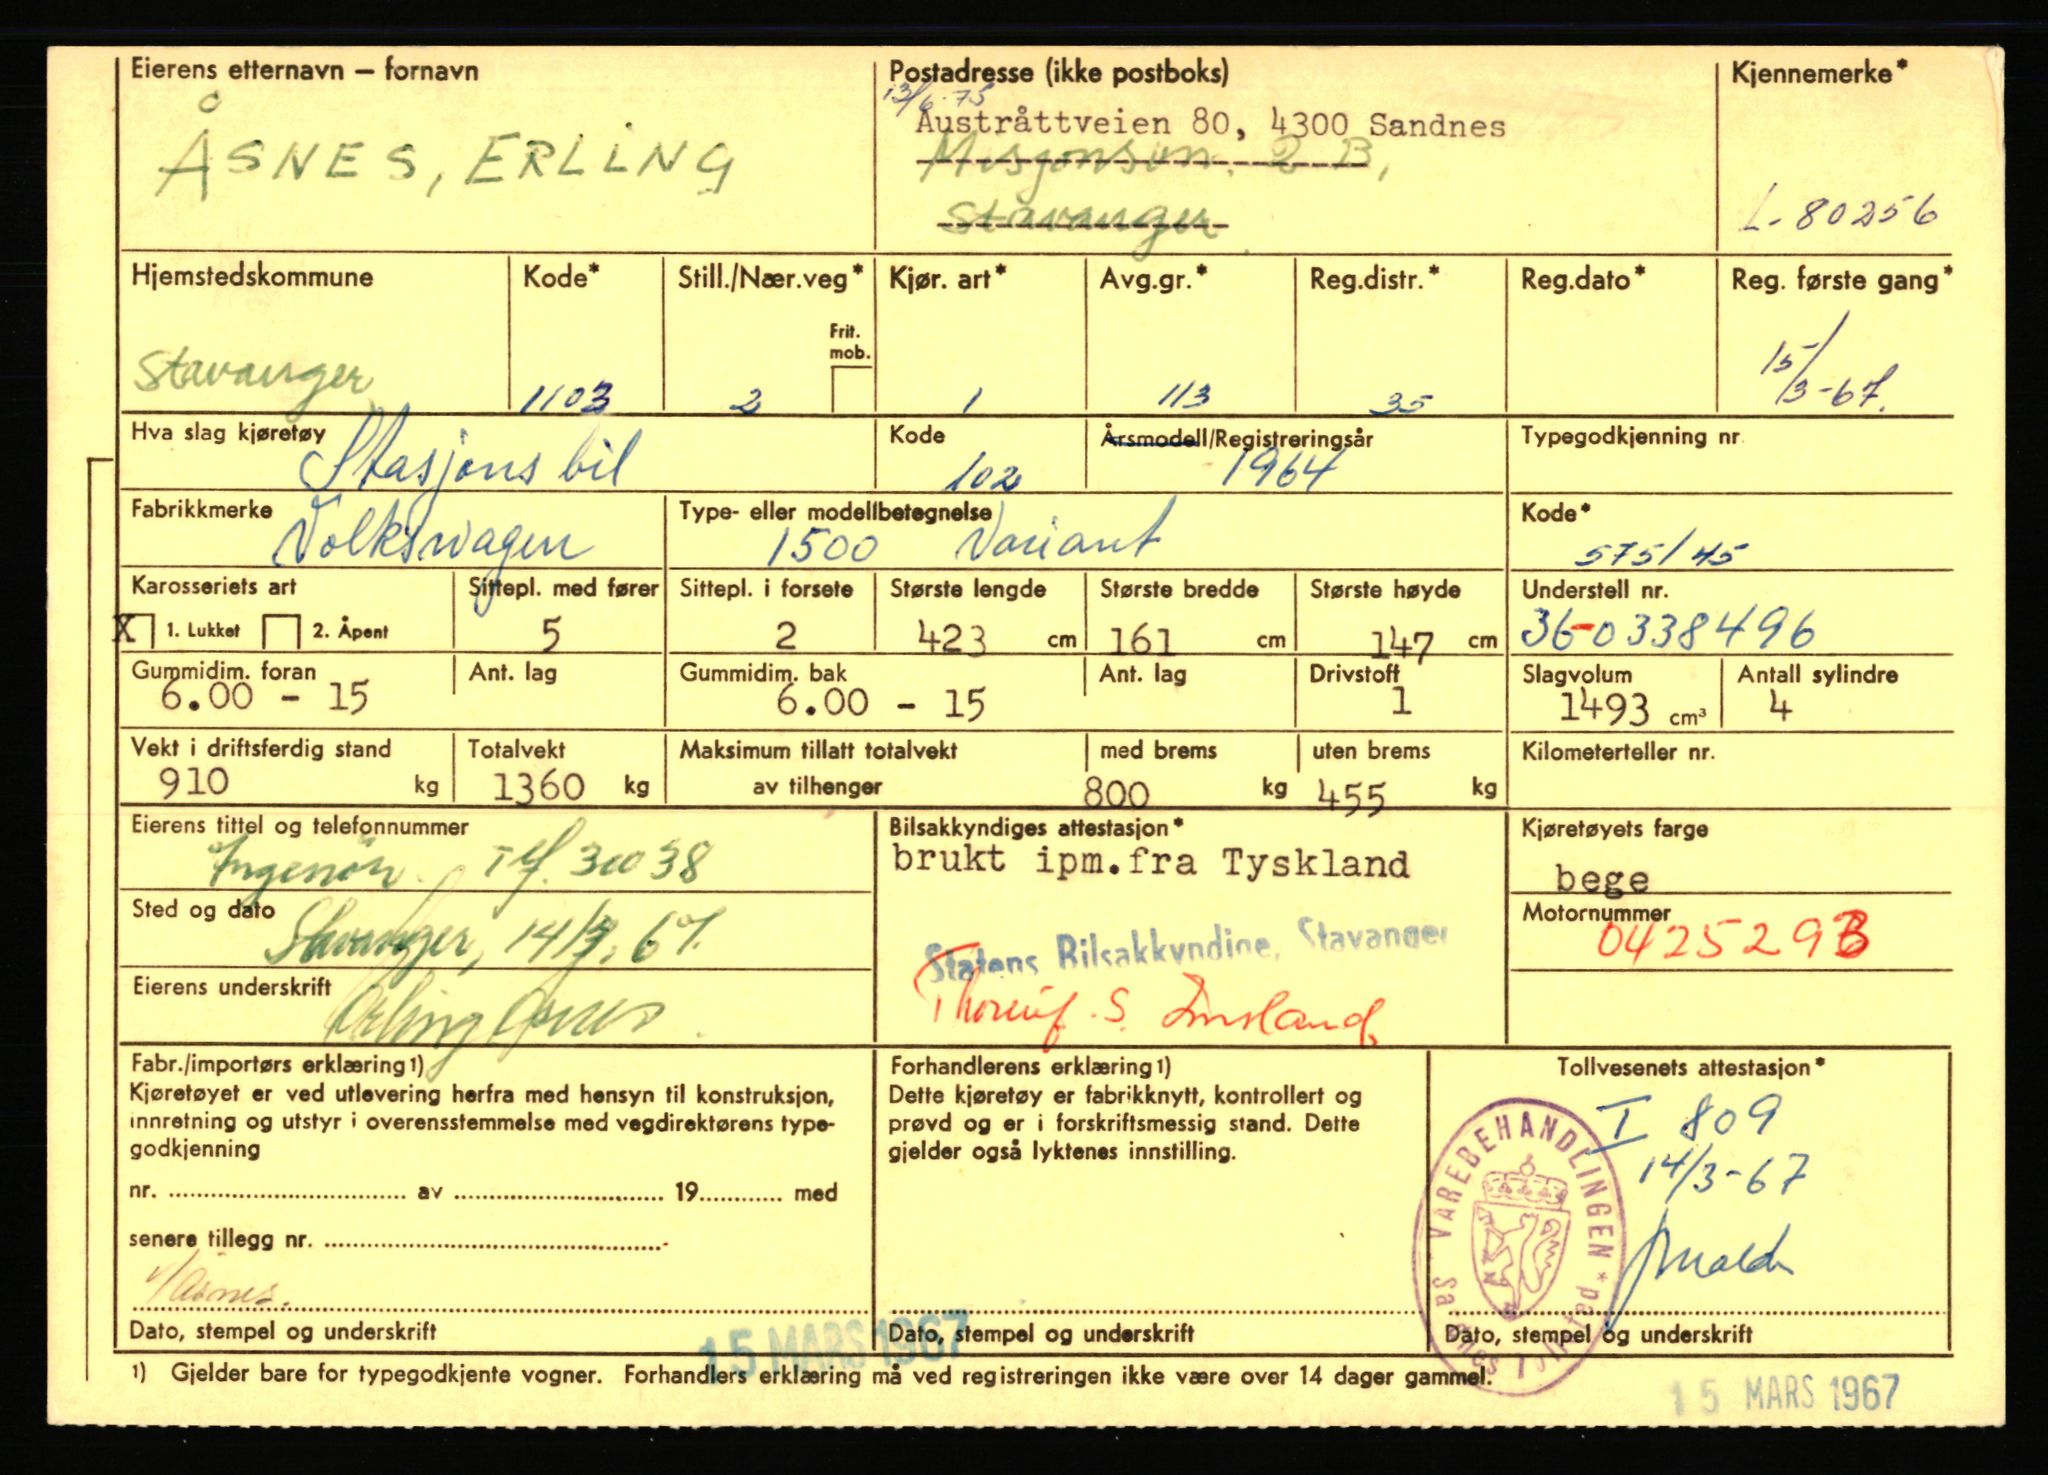 Eierens etternavn – fornavn
ÅSNES, ERLING
Postadresse (ikke postboks)
13/6-75
Austråttveien 80, 4300 Sandnes
2 B,
Stavanger
Kjennemerke*
L-80256
Hjemstedskommune
Stavanger
Kode*
1103
Still./Nær.veg*
Frit.
mob.
2
Kjør. art*
1
Avg.gr.*
113
Reg.distr.*
35
Reg.dato*
Reg. første gang*
15/3-67.
Hva slag kjøretøy
Stasjonsbil
Kode
102
Årsmodell/Registreringsår
1964
Typegodkjenning nr.
Fabrikkmerke
Volkswagen
Type- eller modellbetegnelse
1500 Variant
Kode*
575/45
Karosseriets art
X 1. Lukket 2. Åpent
Sittepl. med fører
5
Sittepl. i forsete
2
Største lengde
423 cm
Største bredde
161 cm
Største høyde
147 cm
Understell nr.
36-0338496
Gummidim. foran
6.00 - 15
Ant. lag
Gummidim. bak
6.00 - 15
Ant. lag
Drivstoff
1
Slagvolum
1493 cm³
Antall sylindre
4
Vekt i driftsferdig stand
910 kg
Totalvekt
1360 kg
Maksimum tillatt totalvekt
av tilhenger
med brems
800 kg
uten brems
455 kg
Kilometerteller nr.
Eierens tittel og telefonnummer
Ingeniør. Tlf. 30038
Bilsakkyndiges attestasjon*
brukt ipm.fra Tyskland
Statens Bilsakkyndige, Stavanger
Kjøretøyets farge
bege
Sted og dato
Stavanger, 14/3. 67.
Motornummer
Eierens underskrift
Erling Åsnes
Fabr./importørs erklæring 1)
Kjøretøyet er ved utlevering herfra med hensyn til konstruksjon,
innretning og utstyr i overensstemmelse med vegdirektørens type-
godkjenning
nr. .......... av .......... 19.......... med
senere tillegg nr. ..........
Dato, stempel og underskrift
Forhandlerens erklæring 1)
Dette kjøretøy er fabrikknytt, kontrollert og
prøvd og er i forskriftsmessig stand. Dette
gjelder også lyktenes innstilling.
Dato, stempel og underskrift
Tollvesenets attestasjon*
I 809
14/3-67
VAREBEHANDLINGEN *
Dato, stempel og underskrift
15 MARS 1967
1) Gjelder bare for typegodkjente vogner. Forhandlers erklæring må ved registreringen ikke være over 14 dager gammel.
15 MARS 1967